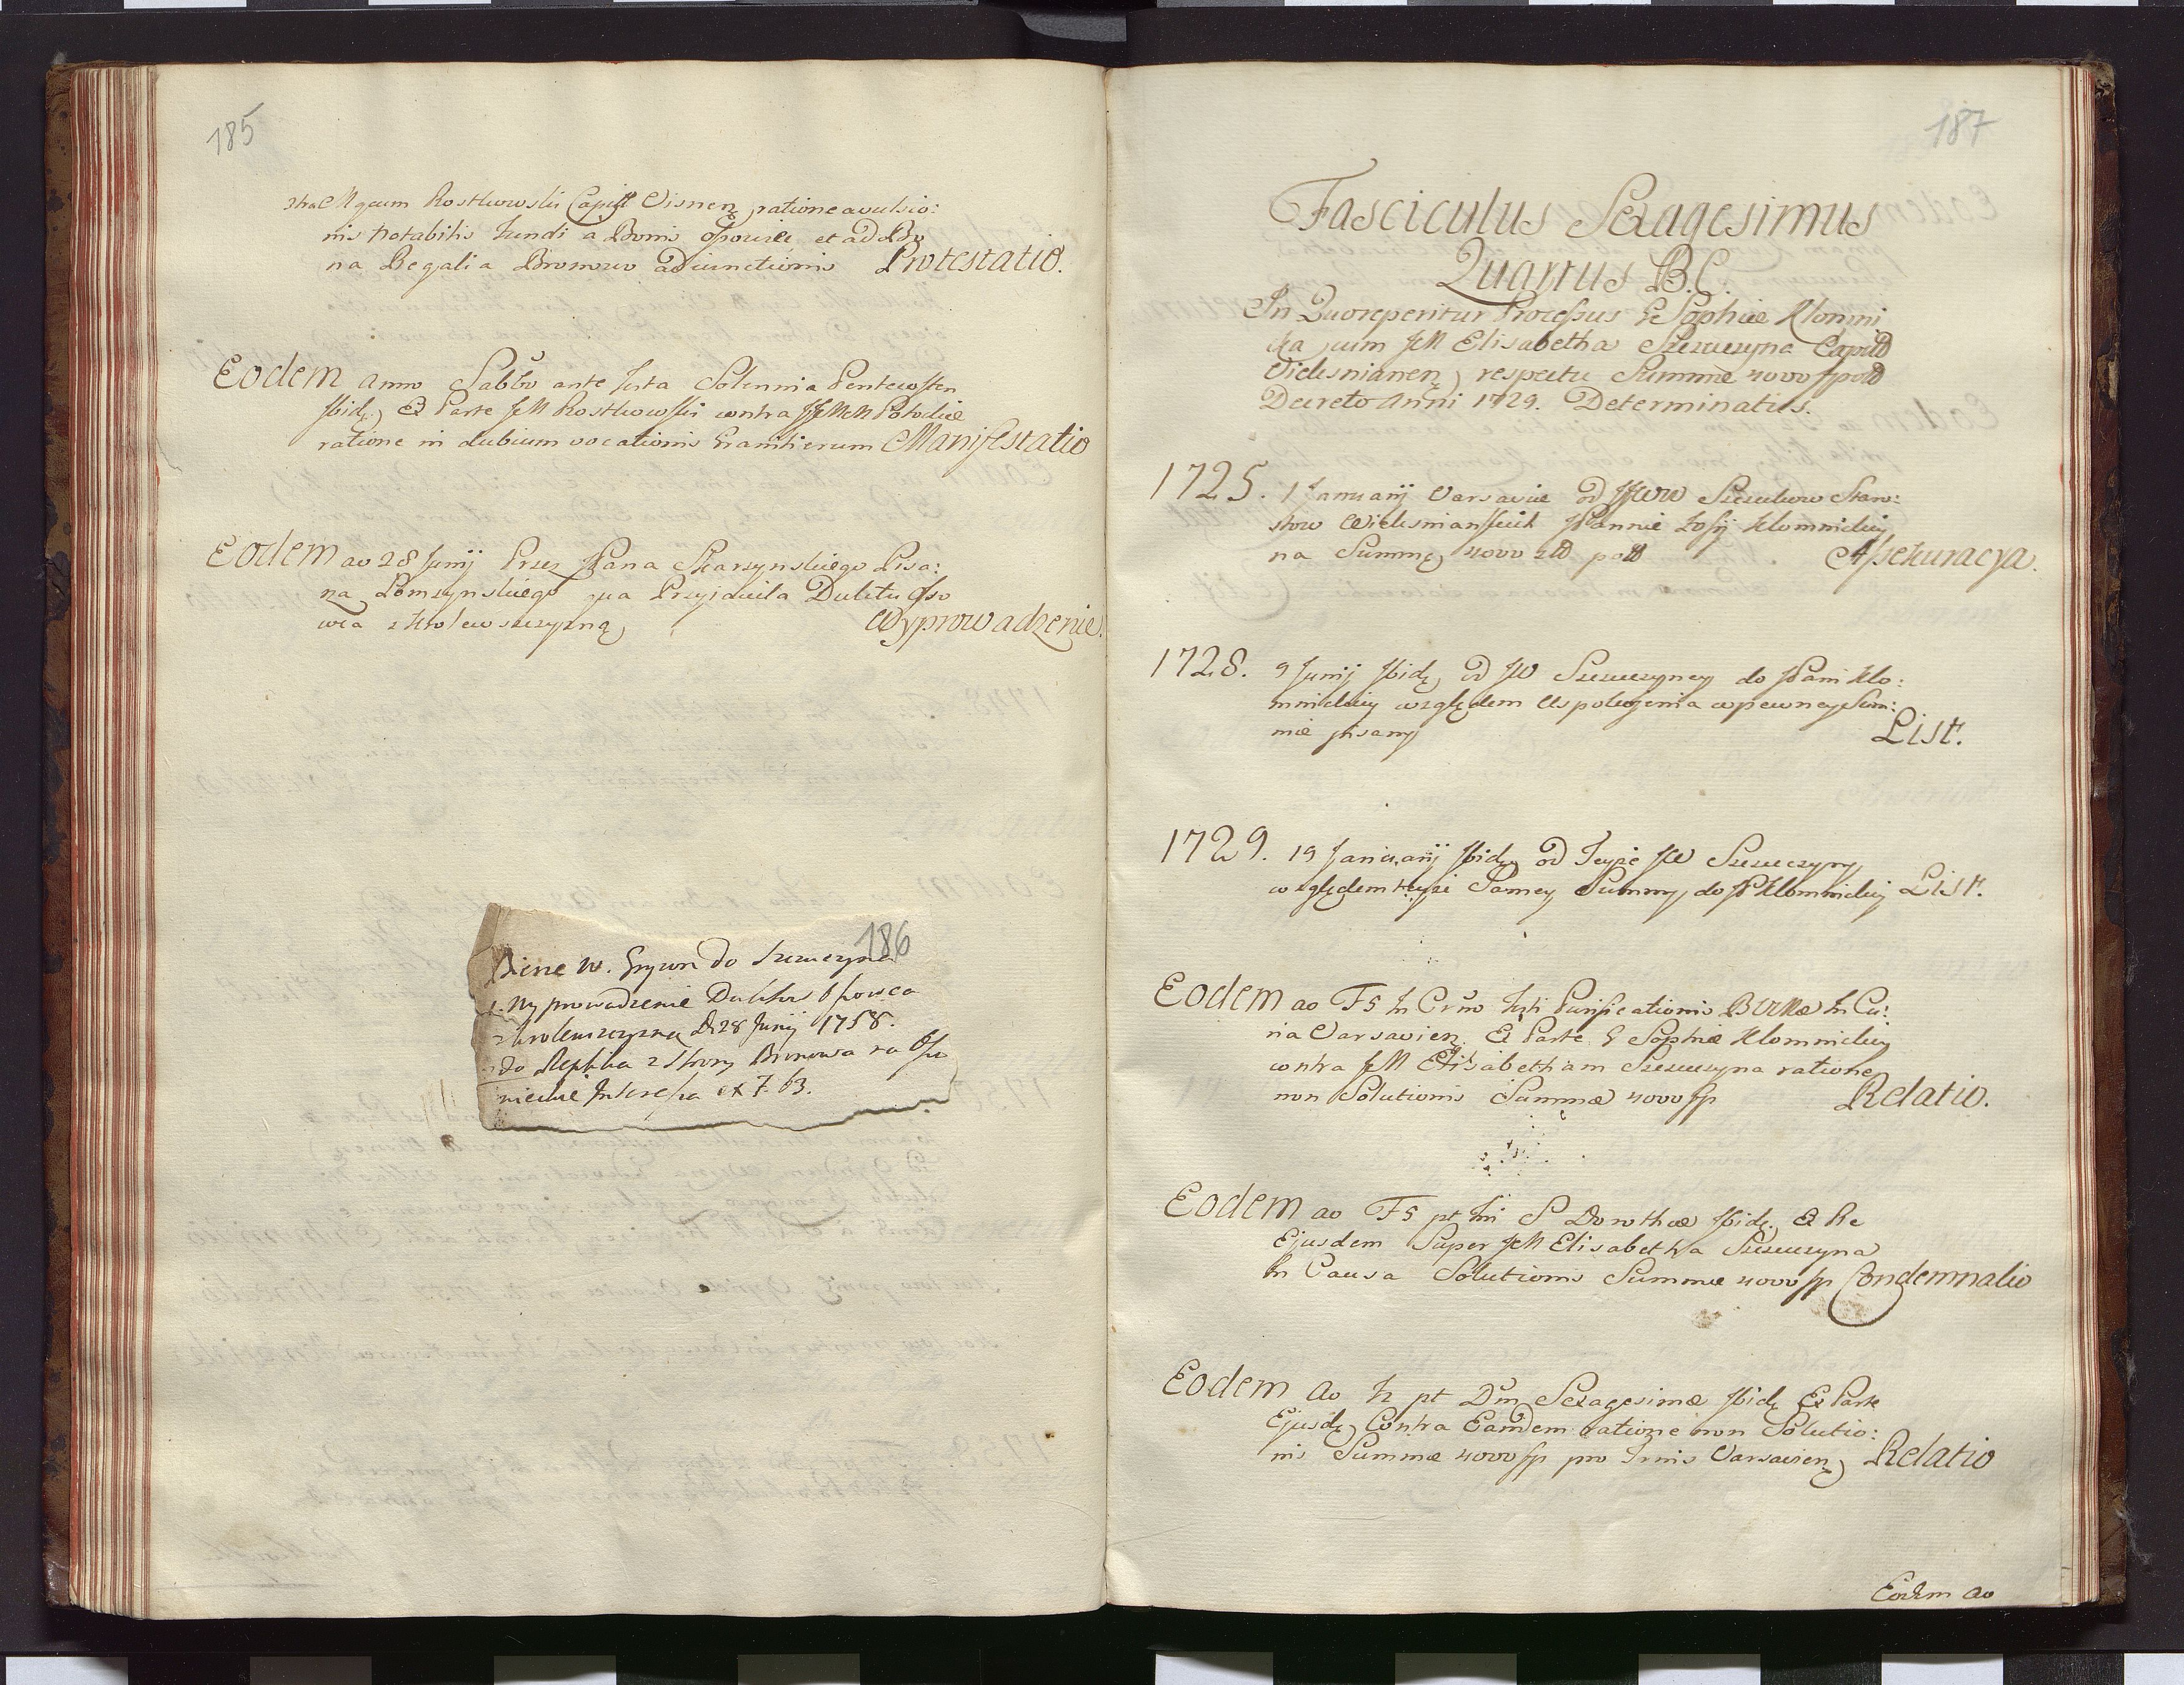 185
ntra Mgcum Rostkowski Capit Visnen ratione avulsio:
nis notabilis fundi a Bonis Osowiec et ad Bo
na Regalia Bronowo adiunctionis Protestatio.
Eodem anno Sabbo ante festa Solennia Pentecosten
Ibid. Ex Parte JM Rostkowski contra JJMM Potockie
ratione in dubium vocationis Granicierum Manifestatio
Eodem ao 28 Junij Przez JPana Skarzynskiego Pisa:
rza Łomzynskiego qua Przyjaciela Duktu Oso
wca z Krolewszczyzną Wyprowadzenie.
186
Bierze W. Grzywn do Szczuczyna
1. Wyprowadzenie Duktu Osowca
z krolewszczyzną D. 28 Junij 1758.
do Replika z Strony Bronowa na
Interessa ex F. 63.
187
Fasciculus Sexagesimus
Quartus B.C.
In Quo reperitur Processus G Sophiæ Klomni
cka cum JM Elisabetha Szczuczyna Capitd
Wielsnianen, respectu Summæ 4000 fpold
Decreto Anni 1729. Determinatus.
1725. 1 Januarij Varsaviæ od JJWW Szczukow Staro:
stow Wielsnianskich JPannie Zofij Klomnickiy
na Summę 4000 zld pold Assekuracya.
1728. 9 Junij Ibid. od JW Szczuczyney do JPani Klo:
mnickiey względem Uspokojenia w pewney Sum:
mie pisany List.
1729. 19 Januarij Ibid. od Teyże JW Szczuczyny
względem teyże Samey Summy do JP Klomnickiy List.
Eodem ao F5 in Crno festi Purificationis BVMæ in Cu:
ria Varsavien. Ex Parte G Sophiæ Klomnickiy
contra JM Elisabetham Szczuczyna ratione
non Solutionis Summæ 4000 fp Relatio.
Eodem ao F5 pt fm S Dorotheæ Ibid. Ex Re
Ejusdem Super JM Elisabetha Szczuczyna
In Causa Solutionis Summæ 4000 fp Condemnatio
Eodem Ao pt Dm Sexagesimæ Ibid. Ex Parte
Ejusd. Contra Eamdem ratione non Solutio:
nis Summæ 4000 fp pro Trmis Varsavien. Relatio
Eodem ao